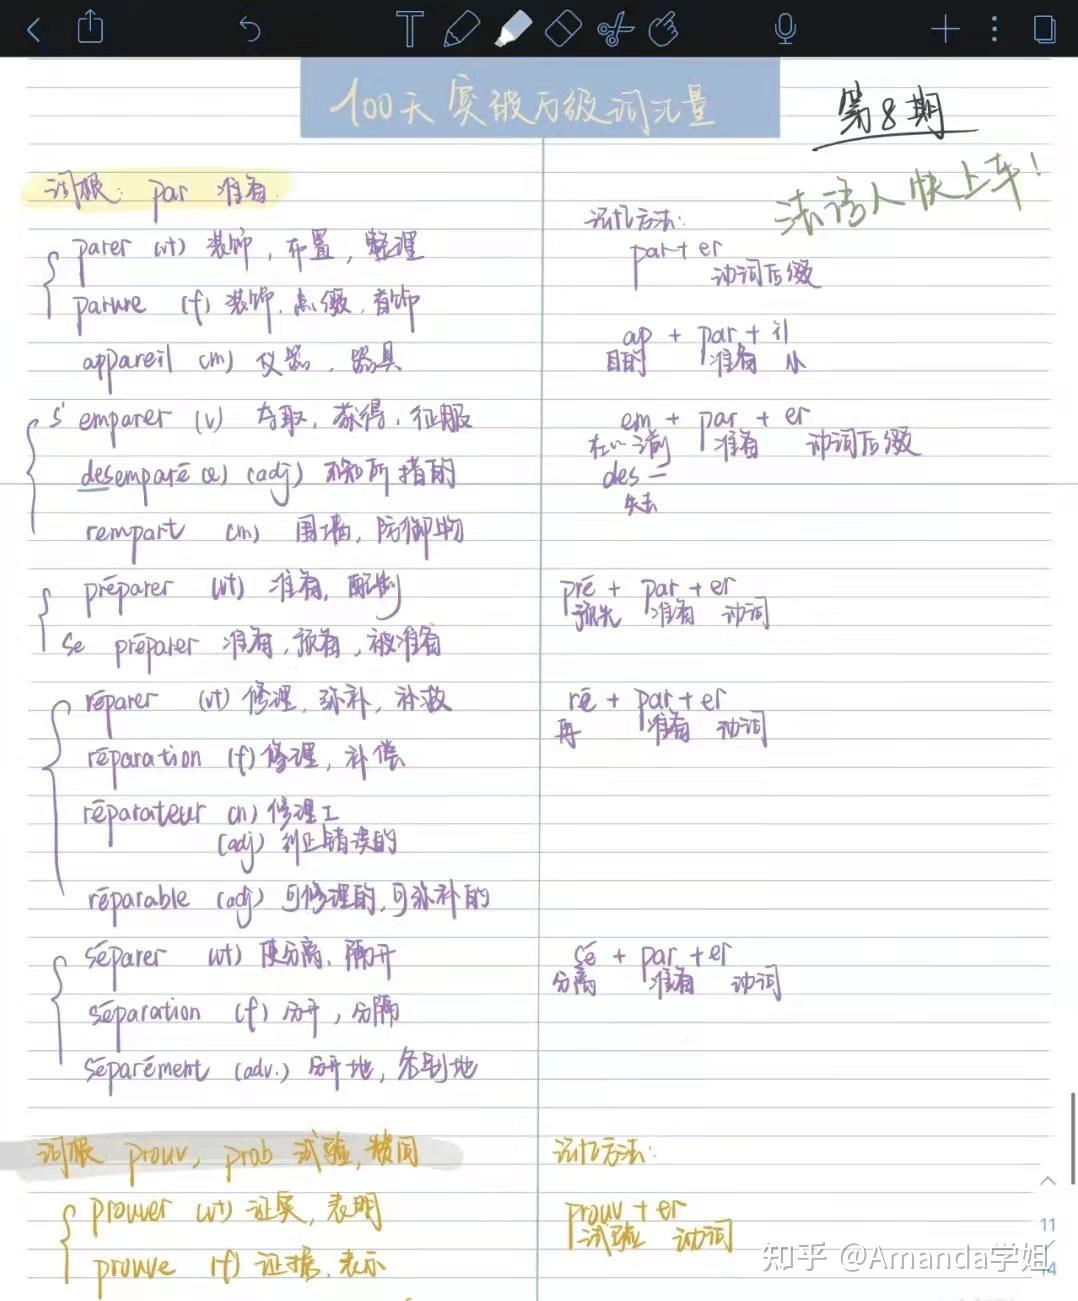 100天突破万级词汇量
第8期
法语人快上车!
词根: par 准备
记忆方法:
parer (vt) 装饰, 布置, 整理
par + er
动词后缀
parure (f) 装饰, 点缀, 首饰
appareil (m) 仪器, 器具
ap + par + il
目的 准备 小
s'emparer (v) 夺取, 获得, 征服
em + par + er
在…之前 准备 动词后缀
desemparé(e) (adj) 不知所措的
des =
失去
rempart (m) 围墙, 防御物
préparer (vt) 准备, 配制
pré + par + er
预先 准备 动词
se préparer 准备, 预备, 被准备
réparer (vt) 修理, 弥补, 补救
ré + par + er
再 准备 动词
réparation (f) 修理, 补偿
réparateur (n) 修理工
(adj) 纠正错误的
réparable (adj) 可修理的, 可弥补的
séparer (vt) 使分离, 隔开
sé + par + er
分离 准备 动词
séparation (f) 分开, 分隔
séparément (adv.) 分开地, 各别地
词根 prouv, prob 试验,
记忆方法:
prouver (vt) 证实, 表明
prouv + er
试验 动词
prouve (f) 证据, 表示
11
14
知乎 @Amanda学姐